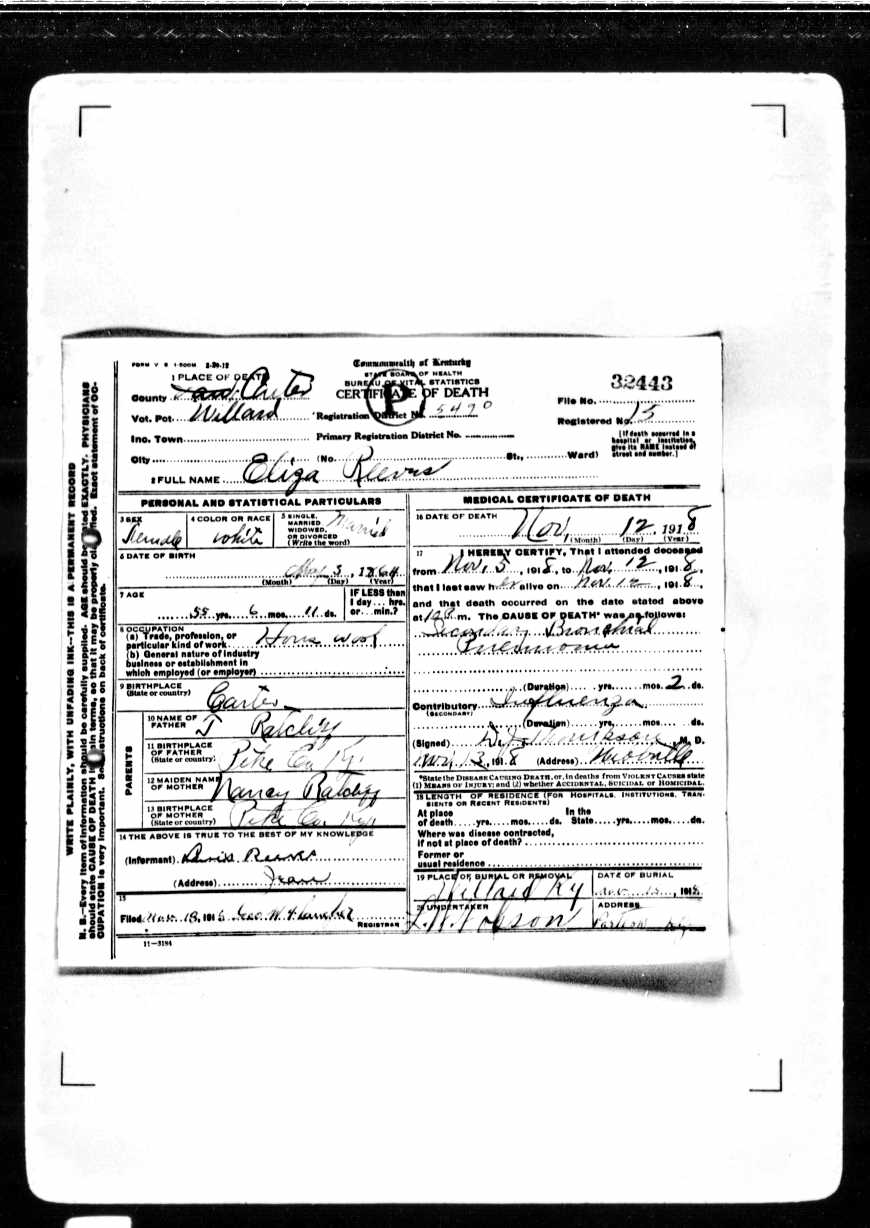 FORM V S 1-500M 2-20-12
Commonwealth of Kentucky
STATE BOARD OF HEALTH
BUREAU OF VITAL STATISTICS
CERTIFICATE OF DEATH
P
1 PLACE OF DEATH
County Carter
Vot. Pct. Willard
Registration District No. 5490
Inc. Town
Primary Registration District No.
City (No. St., Ward)
32443
File No.
Registered No. 15
[If death occurred in a hospital or institution, give its NAME instead of street and number.]
2 FULL NAME Eliza Reeves
PERSONAL AND STATISTICAL PARTICULARS
3 SEX Female
4 COLOR OR RACE White
5 SINGLE, MARRIED WIDOWED, OR DIVORCED (Write the word) Married
6 DATE OF BIRTH
5, 1864
(Month) (Day) (Year)
7 AGE
55 yrs. 6 mos. 11 ds.
IF LESS than 1 day... hrs. or... min.?
8 OCCUPATION
(a) Trade, profession, or particular kind of work
(b) General nature of industry business or establishment in which employed (or employer)
9 BIRTHPLACE
(State or country) Carter
PARENTS
10 NAME OF FATHER J Ratcliff
11 BIRTHPLACE OF FATHER (State or country) Pike Co Ky
12 MAIDEN NAME OF MOTHER Nancy Ratcliff
13 BIRTHPLACE OF MOTHER (State or country) Pike Co Ky
14 THE ABOVE IS TRUE TO THE BEST OF MY KNOWLEDGE
(Informant) Reeves
(Address)
15
Filed Nov. 18, 191 Geo. W.
REGISTRAR
11—3184
MEDICAL CERTIFICATE OF DEATH
16 DATE OF DEATH
Nov, 12, 1918
(Month) (Day) (Year)
17 I HEREBY CERTIFY, That I attended deceased
from Nov. 5, 1918, to Nov. 12, 1918,
that I last saw her alive on Nov. 12, 1918,
and that death occurred on the date stated above
at m. The CAUSE OF DEATH* was as follows:
Secondary Bronchial
Pneumonia
(Duration) yrs. mos. 2 ds.
Contributory Influenza
(SECONDARY)
(Duration) yrs. mos. ds.
(Signed) M. D.
Nov 13, 1918 (Address)
*State the DISEASE CAUSING DEATH, or, in deaths from VIOLENT CAUSES state
(1) MEANS OF INJURY; and (2) whether ACCIDENTAL, SUICIDAL or HOMICIDAL.
18 LENGTH OF RESIDENCE (FOR HOSPITALS, INSTITUTIONS, TRANSIENTS OR RECENT RESIDENTS)
At place of death yrs. mos. ds. In the State yrs. mos. ds.
Where was disease contracted, if not at place of death?
Former or usual residence
19 PLACE OF BURIAL OR REMOVAL
Willard Ky
DATE OF BURIAL
, 191
20 UNDERTAKER
ADDRESS
WRITE PLAINLY, WITH UNFADING INK—THIS IS A PERMANENT RECORD
N. B.—Every item of information should be carefully supplied. AGE should be stated EXACTLY. PHYSICIANS
should state CAUSE OF DEATH in plain terms, so that it may be properly classified. Exact statement of OC-
CUPATION is very important. See instructions on back of certificate.